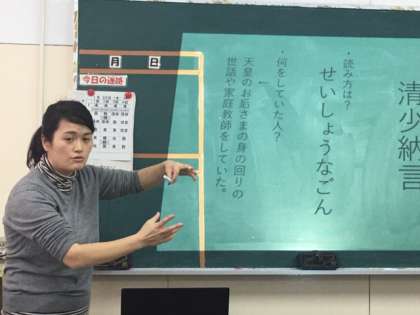 清少納言
・読み方は？
せいしょうなごん
・何をしていた人？
天皇のお后さまの身の回りの
世話や家庭教師をしていた。
月 日
今日の連絡